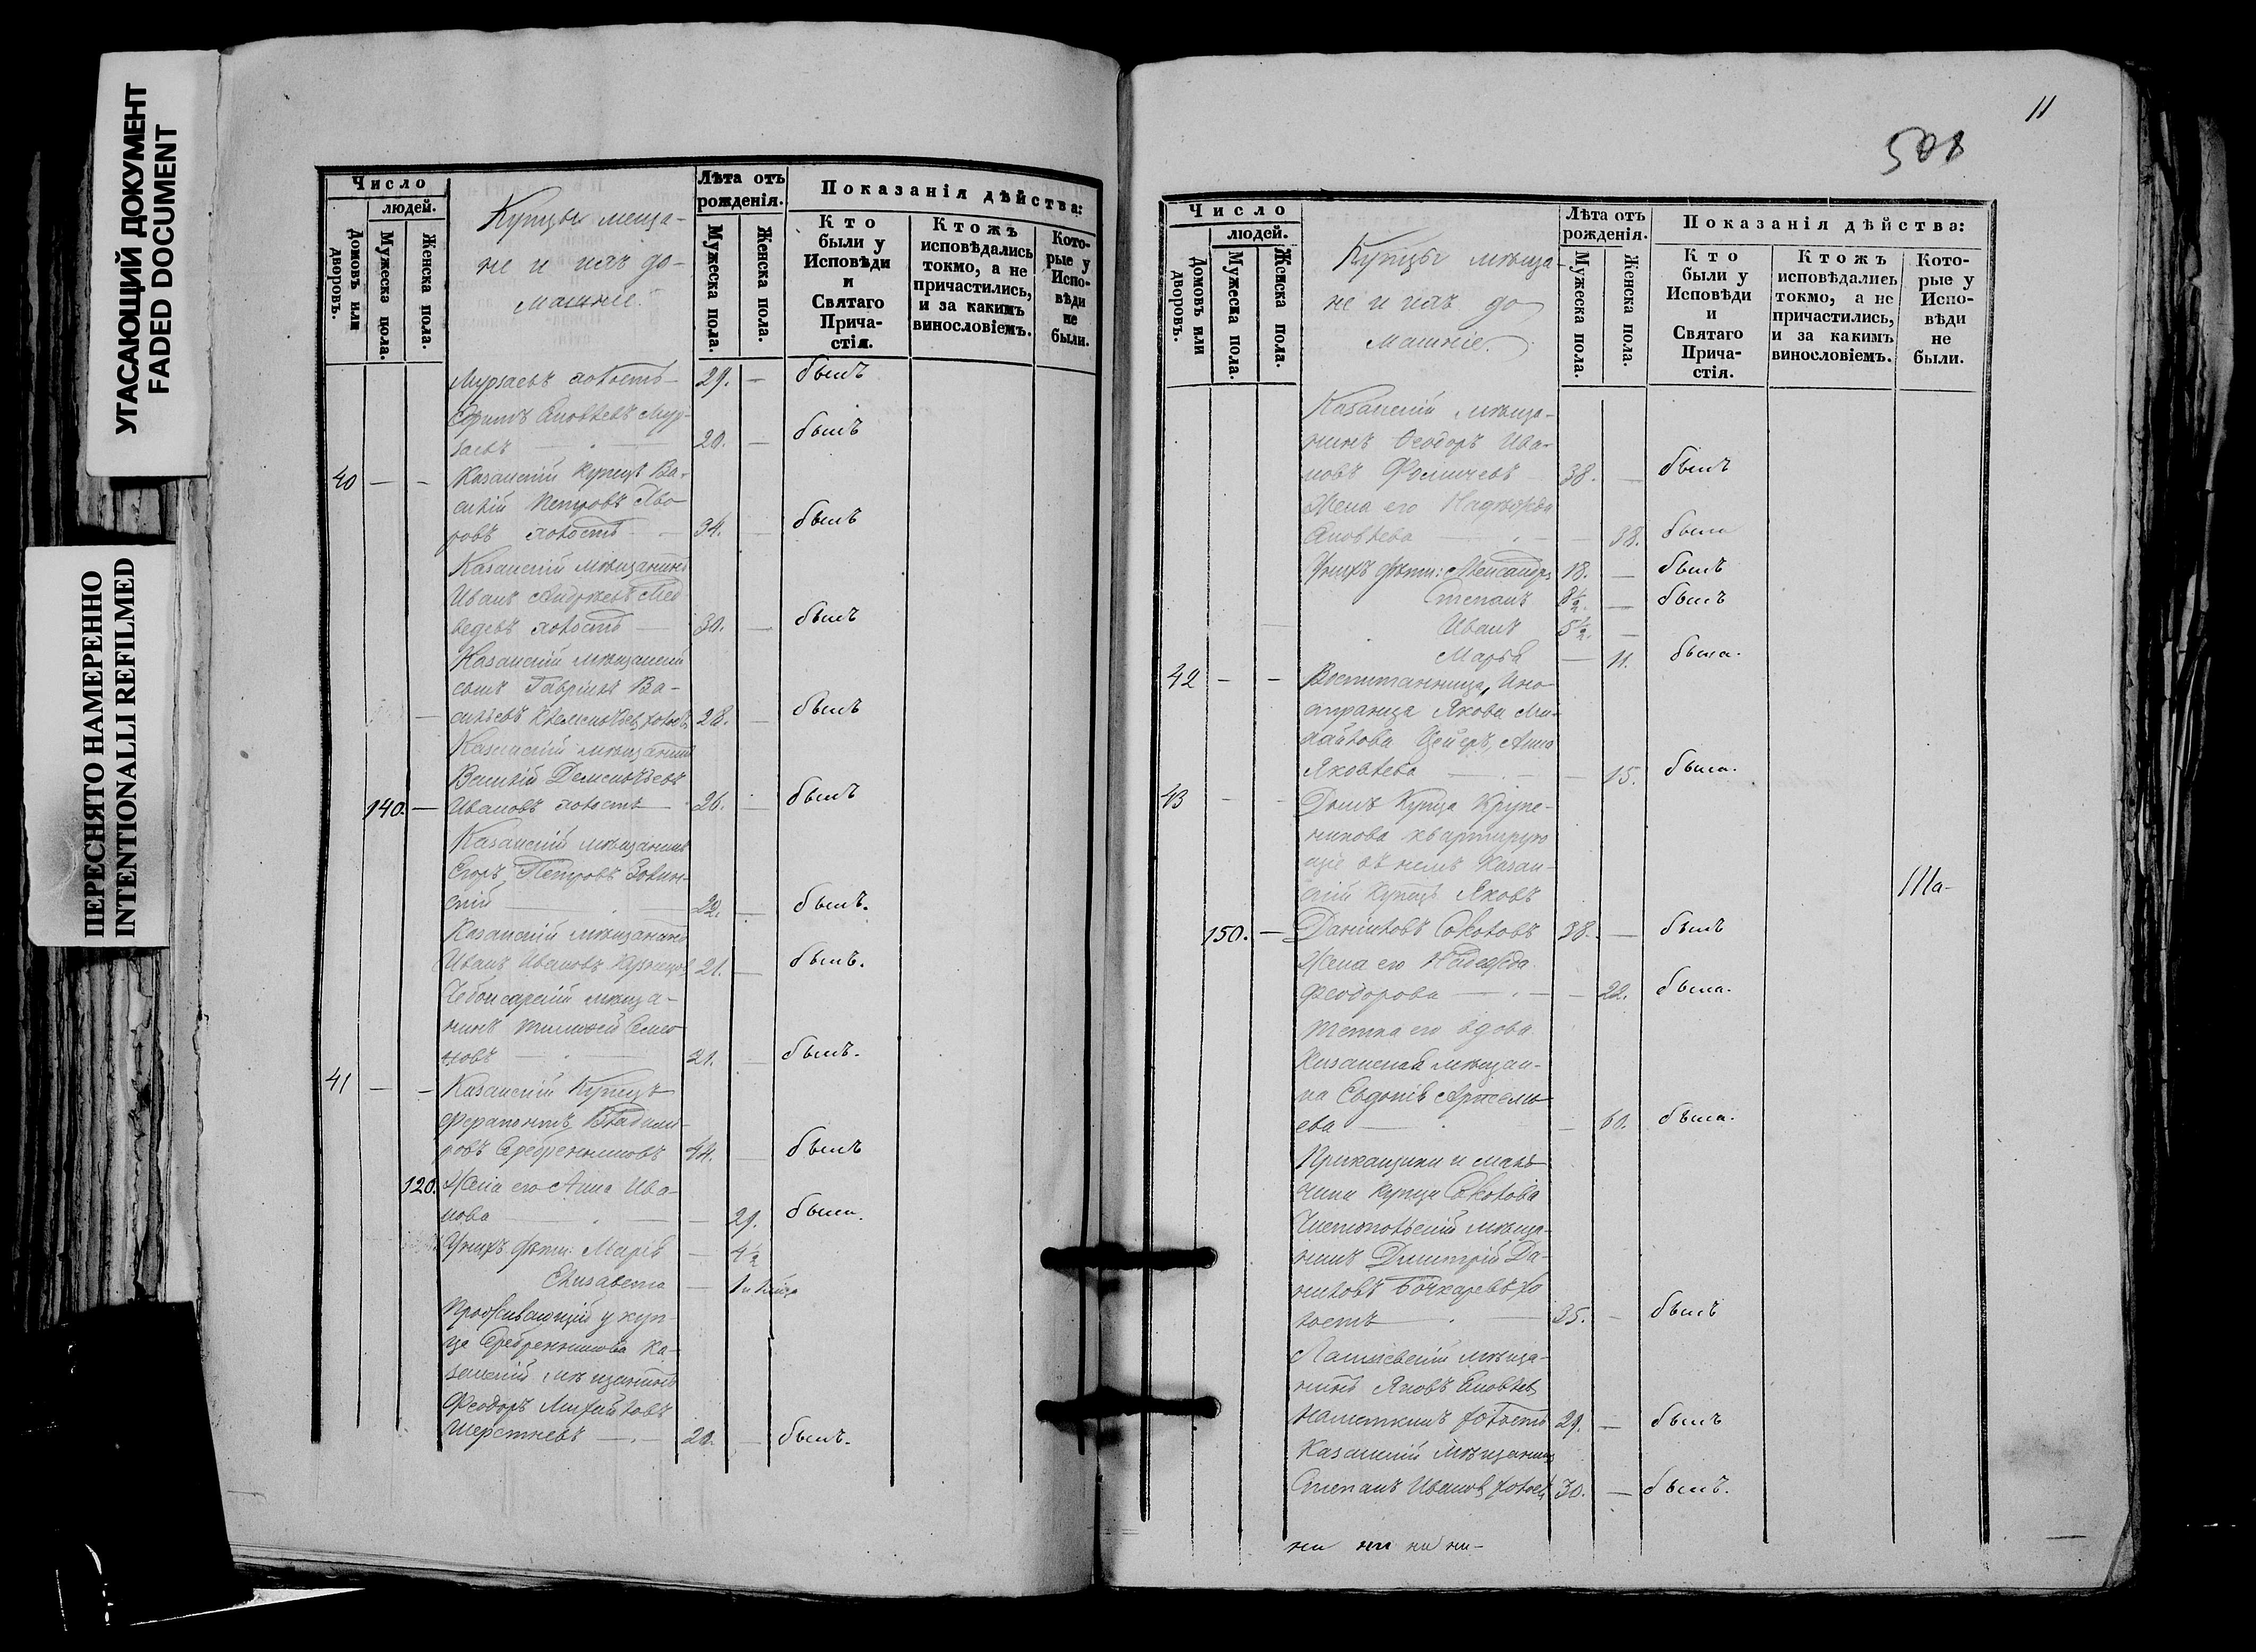 УГАСАЮЩИЙ ДОКУМЕНТ
FADED DOCUMENT
ПЕРЕСНЯТО НАМЕРЕННО
INTENTIONALLI REFILMED
Число
людей.
Домовъ или дворовъ.
Мужеска пола.
Женска пола.
Купцы меща-
не и ихъ до-
машніе.
Лѣта отъ рожденія.
Мужеска пола.
Женска пола.
Показанія дѣйства:
Кто были у Исповѣди и Святаго Прича-стія.
Ктожъ исповѣдались токмо, а не причастились, и за какимъ винословіемъ.
Кото-рые у Испо-вѣди не были.
холостъ 29. — былъ
Яковлевъ
20. — былъ
40 — — Казанскій купецъ Ва-
силій Петровъ
ровъ холостъ 34. — былъ
Казанскій мѣщанинъ
Иванъ Андреевъ Мед
ведевъ холостъ — 30. — былъ
Казанскій мѣщанскій
сынъ Гавріилъ Ва-
сильевъ 28. — былъ
Казанскій мѣщанинъ
140. — Ивановъ холостъ — 26. — былъ
Казанскій мѣщанинъ
Егоръ Петровъ
скій — 22. — былъ.
Казанскій мѣщанинъ
Иванъ Ивановъ 21. — былъ.
Чебоксарскій мѣща-
нинъ Семе
новъ — 21. — былъ.
41 — — Казанскій Купецъ
Ферапонтъ Владими-
ровъ Серебренниковъ 44. — былъ
120. Жена его Анна Ива-
нова — — 29. была.
У нихъ дѣти: Марія — 4½
Елизавета — 1
Проживающій у куп-
ца Серебренникова Ка-
занскій мѣщанинъ
Феодоръ Михайловъ
Шерстневъ — 20. — былъ.
11
501
Число
людей.
Домовъ или дворовъ.
Мужеска пола.
Женска пола.
Купцы мѣща-
не и ихъ до
машніе.
Лѣта отъ рожденія.
Мужеска пола.
Женска пола.
Показанія дѣйства:
Кто были у Исповѣди и Святаго Прича-стія.
Ктожъ исповѣдались токмо, а не причастились, и за какимъ винословіемъ.
Кото-рые у Испо-вѣди не были.
Казанскій мѣща-
нинъ Ѳеодоръ Ива-
новъ Фомичевъ 38. — былъ
Жена его Надежда
Яковлева — — 38. была
У нихъ дѣти: Александръ 18. — былъ
Степанъ 8½. — былъ
Иванъ 5½. —
Марья — 11. была.
42 — — Воспитанница, Ино-
странца Якова Ми-
хайлова Цейеръ, Анна
Яковлева — — 15. была.
43 — — Домъ Купца Крупе-
никова квартирую
щіе въ немъ Казан-
скій Купецъ Яковъ
150. — Даниловъ Соколовъ 38. — былъ
Жена его Надежда
Феодорова — — 22. была.
Тетка его вдова
Казанская мѣщан-
ка Евдокія Арсень
ева — — 60. была.
Прикащики и маль
чики купца Соколова
Чистопольскій мѣща-
нинъ Димитрій Да-
ниловъ Бочкаревъ хо
лостъ — 35. — былъ
Лаишевскій мѣща-
нинъ Яковъ Яковлев
холостъ 29. — былъ
Казанскій мѣщанинъ
Степанъ Иванов холост 30. — былъ.